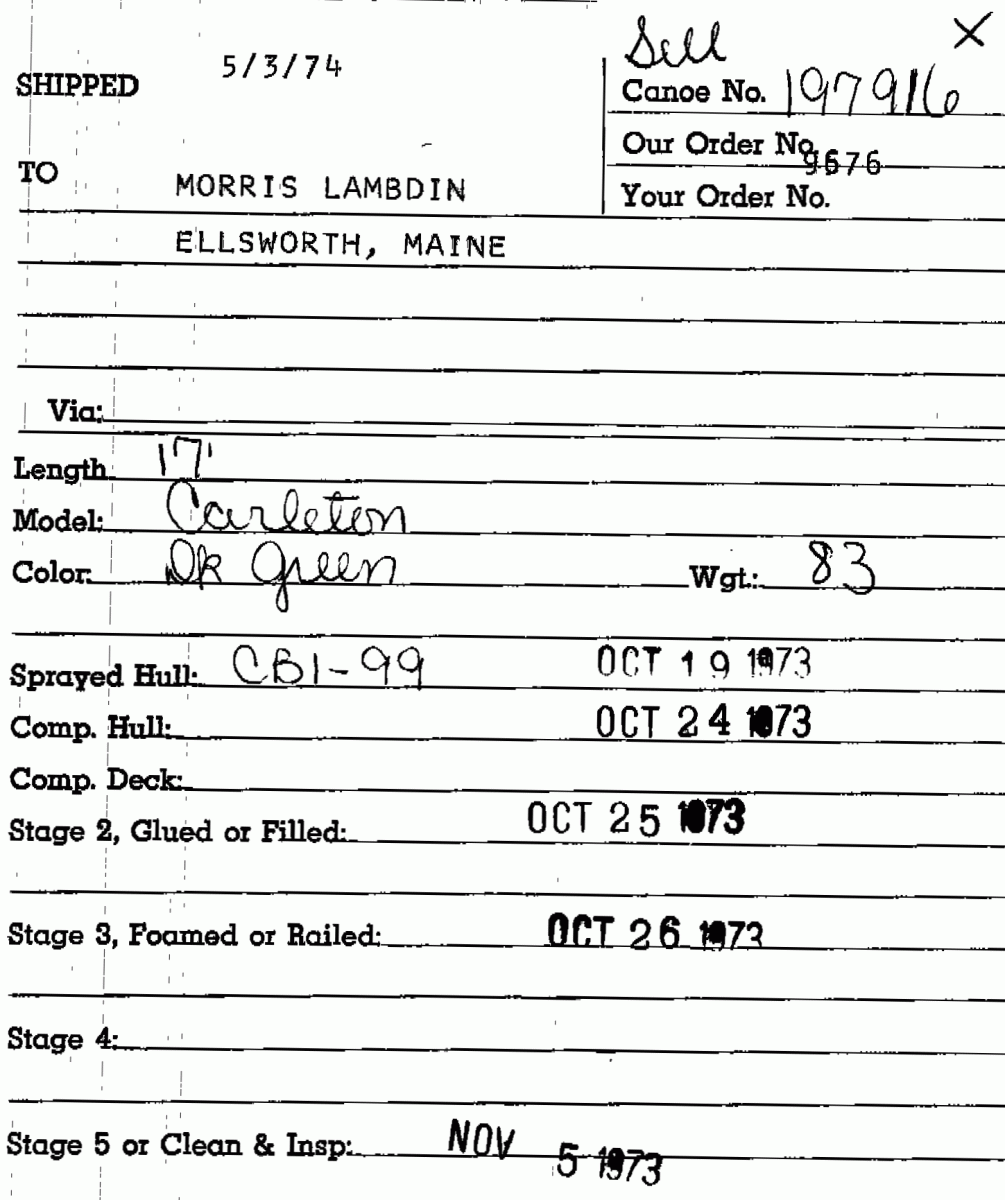 Sell X
SHIPPED 5/3/74
Canoe No. 197916
Our Order No. 9676
TO MORRIS LAMBDIN
Your Order No.
ELLSWORTH, MAINE
Via:
Length 17'
Model: Carleton
Color: Dk Green Wgt.: 83
Sprayed Hull: CB1-99 OCT 19 1973
Comp. Hull: OCT 24 1973
Comp. Deck:
Stage 2, Glued or Filled: OCT 25 1973
Stage 3, Foamed or Railed: OCT 26 1973
Stage 4:
Stage 5 or Clean & Insp: NOV 5 1973